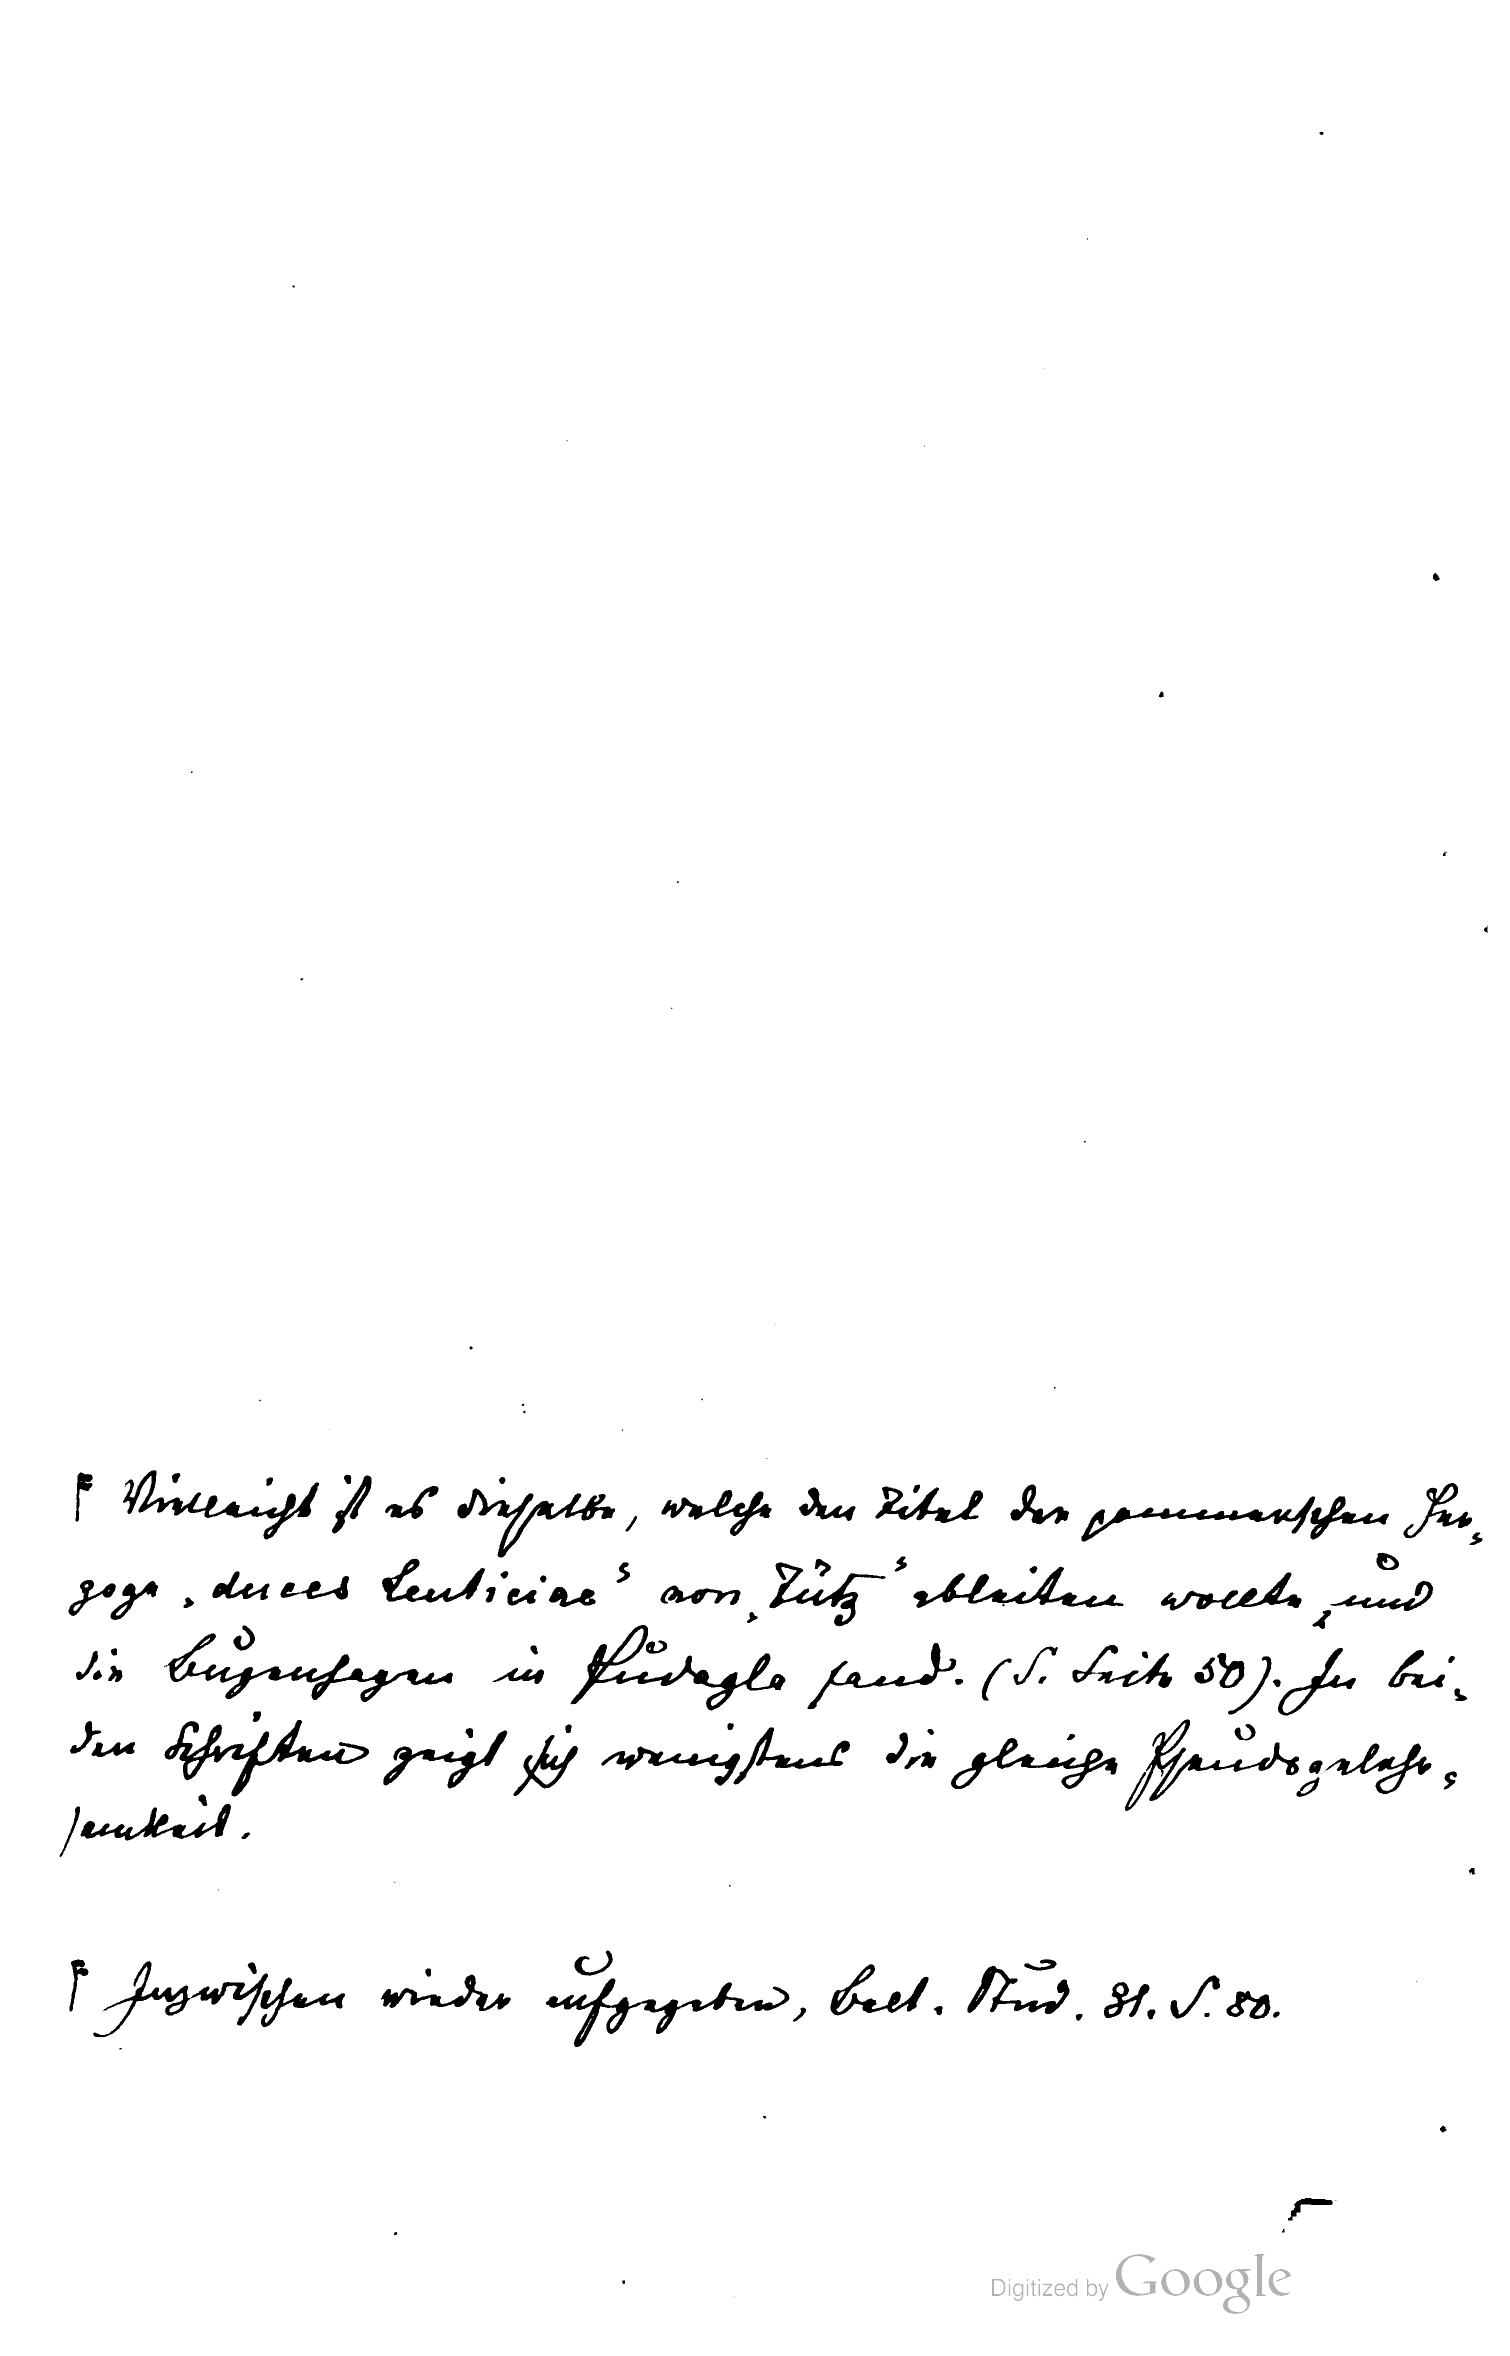 Ꞙ Vielleicht ist es dieselbe, welche den Titel der pommerschen Her-
zoge „duces Leuticiae“ von „Tütz“ ableiten wollte, und
die Bugenhagen in Pudagla fand. (S. Seite 50). In bei-
den Schriften zeigt sich wenigstens die gleiche Pseudogelehr-
samkeit.
Ꞙ Inzwischen wieder aufgegeben, Balt. Stud. 31. S. 80.
Digitized by Google